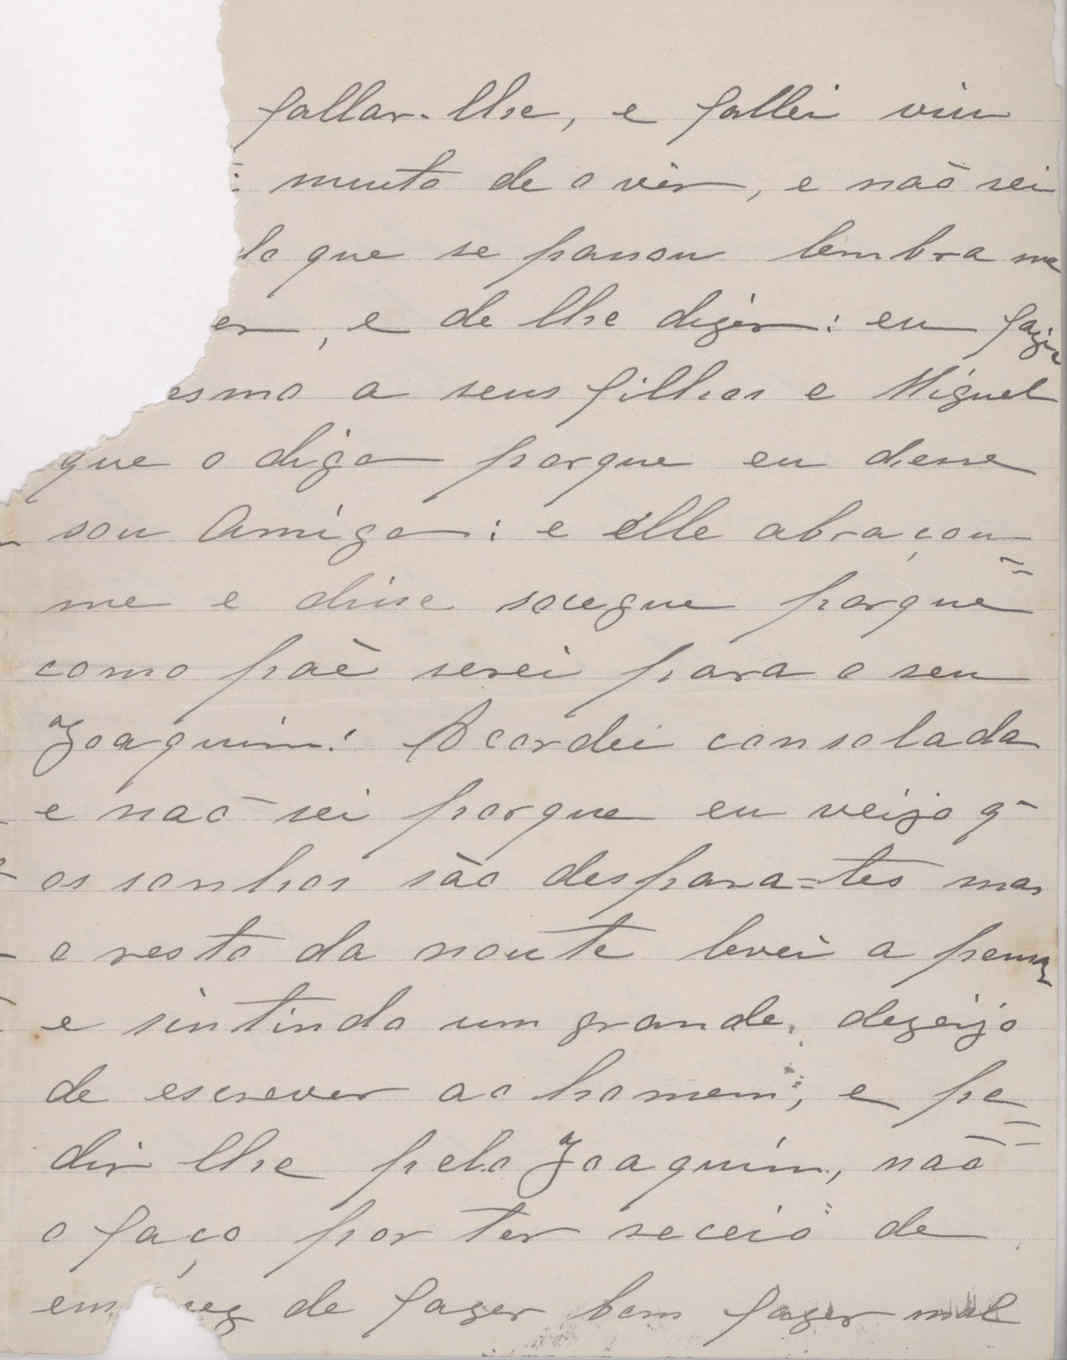 fallar-lhe, e fallei viu
muito de o vêr, e não sei
lo que se passou lembra me
er, e de lhe dizêr: eu fazia
esmo a seus filhos e Miguel
que o diga porque eu desse
sou Amiga: e élle abraçou=
me e disse socegue porque
como paè serei para o seu
Joaquim! Acordei consolada
e não sei porque eu veijo q
os sonhos são despara=tes mas
o resto da noute levei a pensar
e sintindo um grande, dezeijo
de escrever ao homem; e pe=
dir lhe pelo Joaquim, não
o faço por ter receio de
em vez de fazer bem fazer mal